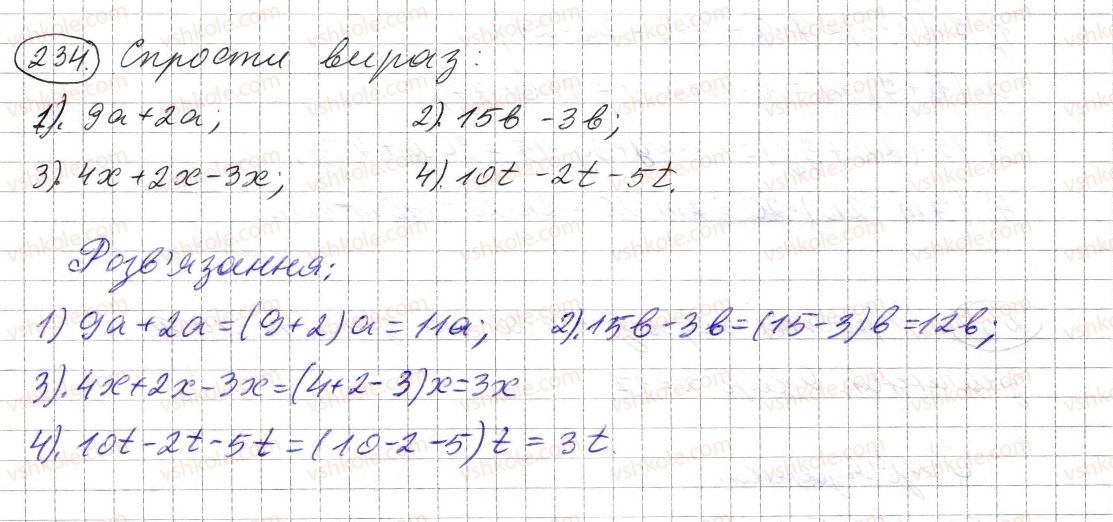 234. Спрости вираз:
1). 9a+2a; 2). 15в-3в;
3). 4x+2x-3x; 4). 10t-2t-5t.
Розв'язання:
1) 9a+2a=(9+2)a=11a; 2). 15в-3в=(15-3)в=12в;
3). 4x+2x-3x=(4+2-3)x=3x
4). 10t-2t-5t=(10-2-5)t=3t.